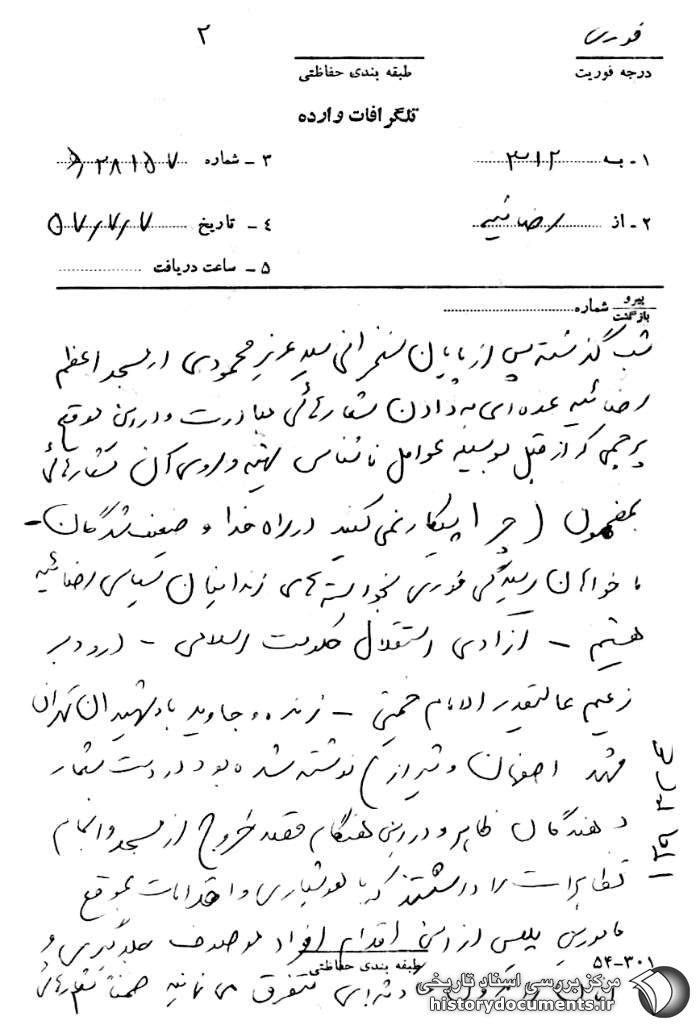 ۲
فوری
درجه فوریت
طبقه بندی حفاظتی
تلگرافات وارده
۱ - به ۳۱۲
۳ - شماره
۲ - از رضائیه
۴ - تاریخ ۵۷/۷/۷
۵ - ساعت دریافت
پیرو
بازگشت
شماره
شب گذشته پس از پایان سخنرانی سید عزیز محمودی از مسجد اعظم
رضائیه عده ای به دادن شعارهائی مبادرت و در این موقع
پرچمی که از قبل بوسیله عوامل ناشناس تهیه و روی آن شعارهائی
بمضمون (چرا پیکار نمی کنید در راه خدا و ضعیف شدگان -
ما خواهان رسیدگی فوری بخواسته های زندانیان سیاسی رضائیه
هستیم - آزادی استقلال حکومت اسلامی - درود بر
زعیم عالیقدر الامام خمینی - زنده و جاوید باد شهیدان تهران
مشهد اصفهان و شیراز) نوشته شده بود در دست شعار
دهندگان ظاهر و در این هنگام قصد خروج از مسجد و انجام
تظاهرات را داشتند که با هوشیاری و اقدامات بموقع
مامورین پلیس از این اقدام افراد موصوف جلوگیری و
آنان بدون حادثه ای متفرق می نمایند ضمنا شعارهائی
طبقه بندی حفاظتی
۵۴-۳۰۱
مرکز بررسی اسناد تاریخی
historydocuments.ir